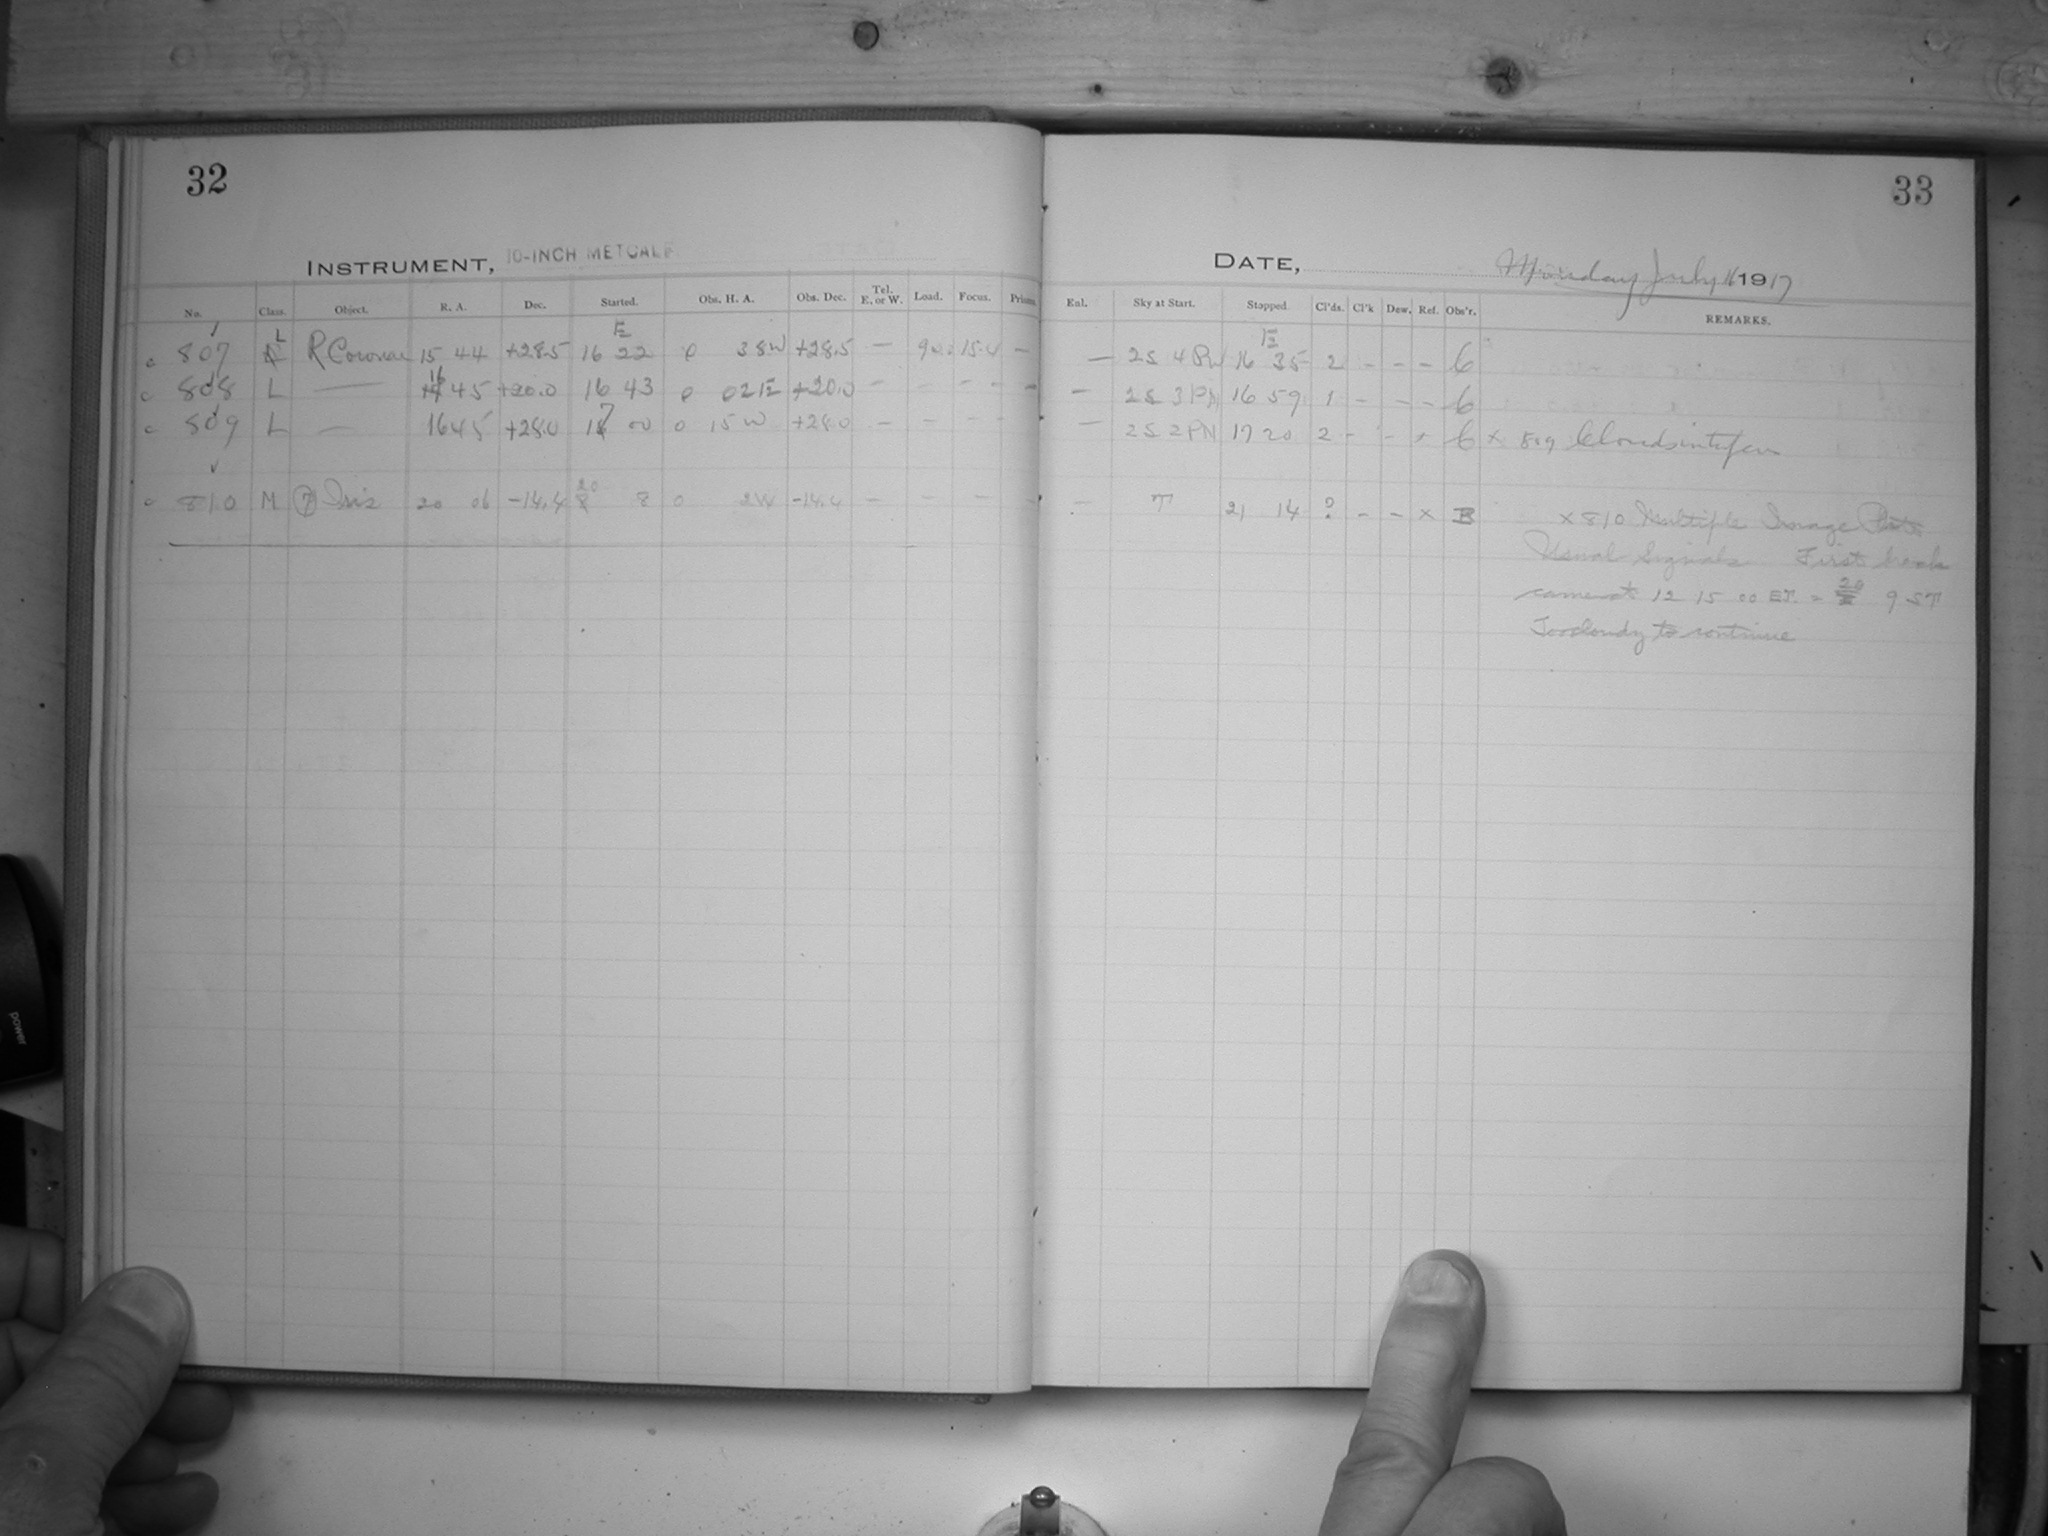 32
INSTRUMENT, 10-INCH METCALF
No. Class. Object. R. A. Dec. Started. Obs. H. A. Obs. Dec. Tel. E. or W. Load. Focus. Prism.
E
c 807 L R Coronae 15 44 +28.5 16 22 0 38W +28.5 — 15.0 —
c 808 L — 16 45 +20.0 16 43 0 02E +20.0 — — — —
c 809 L — 16 45 +28.0 17 00 0 15W +28.0 — — — —
c 810 M (7) Iris 20 06 -14.4 20 8 0 2W -14.4 — — — —
33
DATE, Monday July 16 1917
Enl. Sky at Start. Stopped. Cl'ds. Cl'k Dew. Ref. Obs'r. REMARKS.
E
— 2S 4PN 16 35 2 - - - 6
— 2S 3PN 16 59 1 - - - 6
— 2S 2PN 17 20 2 - - - 6 x 809 Clouds interfere
— T 21 14 ? - - x B x 810 Multiple Image Plate
Usual Signals First break
came at 12 15 00 ET. = 20 9 ST
Too cloudy to continue
power